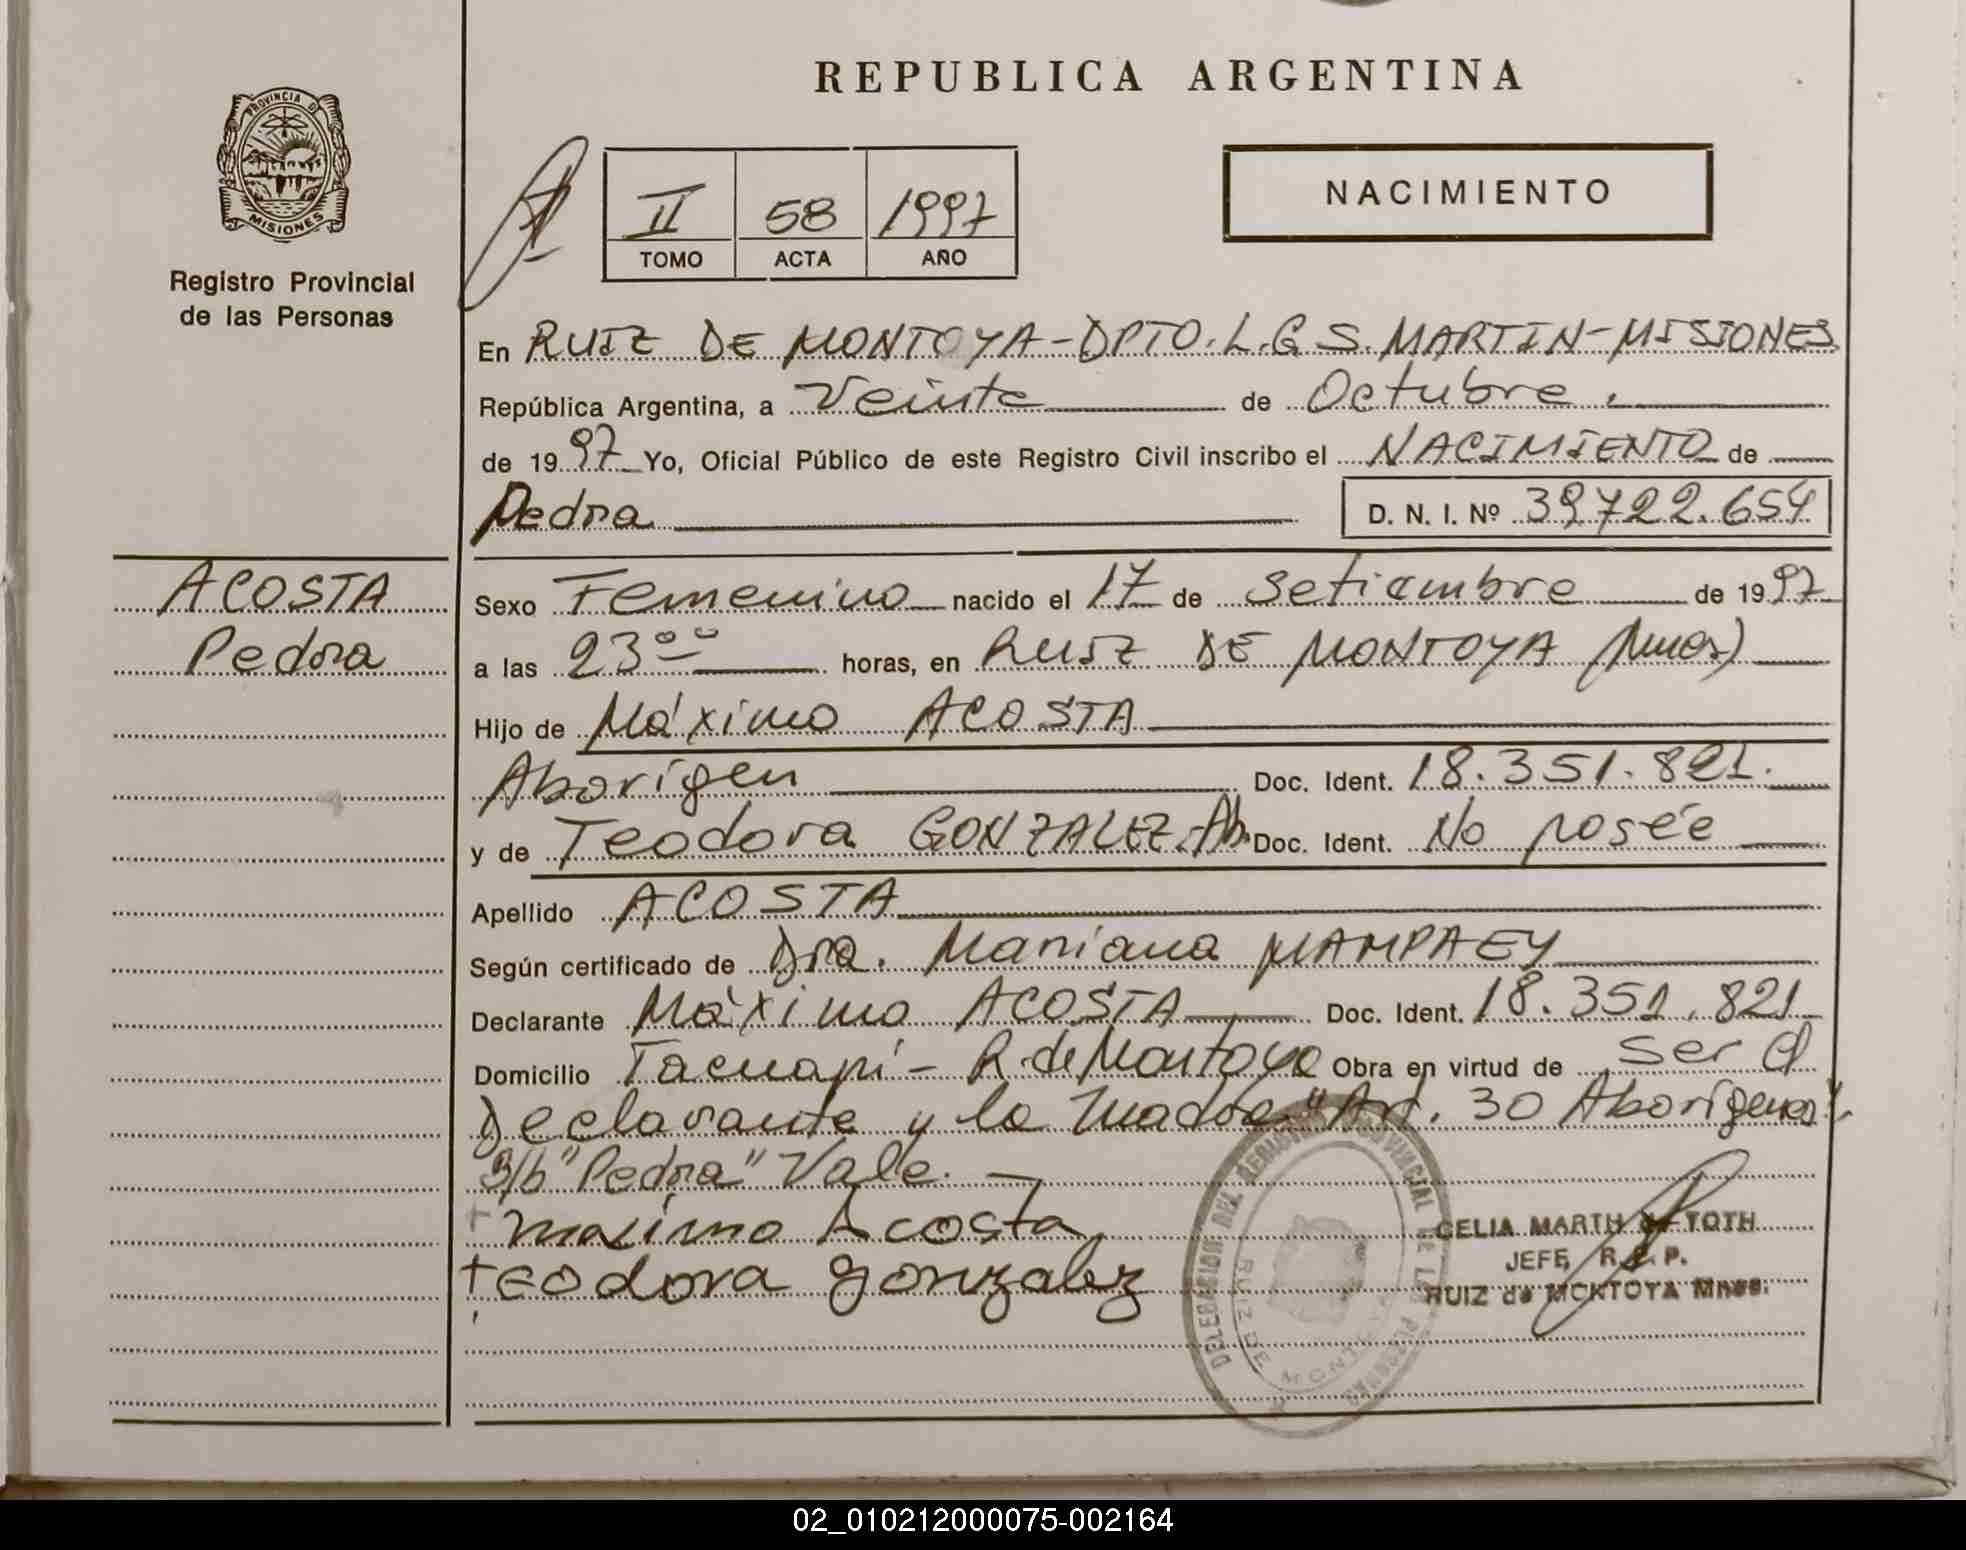 REPUBLICA ARGENTINA
PROVINCIA DE
MISIONES
Registro Provincial
de las Personas
II 58 1997
TOMO ACTA AÑO
NACIMIENTO
En RUIZ DE MONTOYA-DPTO.L.G.S.MARTIN-MISIONES
República Argentina, a Veinte de Octubre.
de 1997 Yo, Oficial Público de este Registro Civil inscribo el NACIMIENTO de
Pedra D. N. I. Nº 39.722.654
ACOSTA
Pedra
Sexo Femenino nacido el 17 de Setiembre de 1997
a las 23 00 horas, en RUIZ DE MONTOYA (Mnes)
Hijo de Máximo ACOSTA
Aborigen Doc. Ident. 18.351.821.
y de Teodora GONZALEZ.Ab. Doc. Ident. No posée
Apellido ACOSTA
Según certificado de Dra. Mariana MAMPAEY
Declarante Máximo ACOSTA Doc. Ident. 18.351.821
Domicilio Tacuapi - R. de Montoya Obra en virtud de ser el
Declarante y la madre "Art. 30 Aborígenes".
S/b "Pedra" Vale.
maximo Acosta
teodora gonzalez
DELEGACION DEL REGISTRO PROVINCIAL DE LAS PERSONAS
RUIZ DE MONTOYA
CELIA MARTH de TOTH
JEFE, R. P. P.
RUIZ de MONTOYA Mnes.
02_010212000075-002164